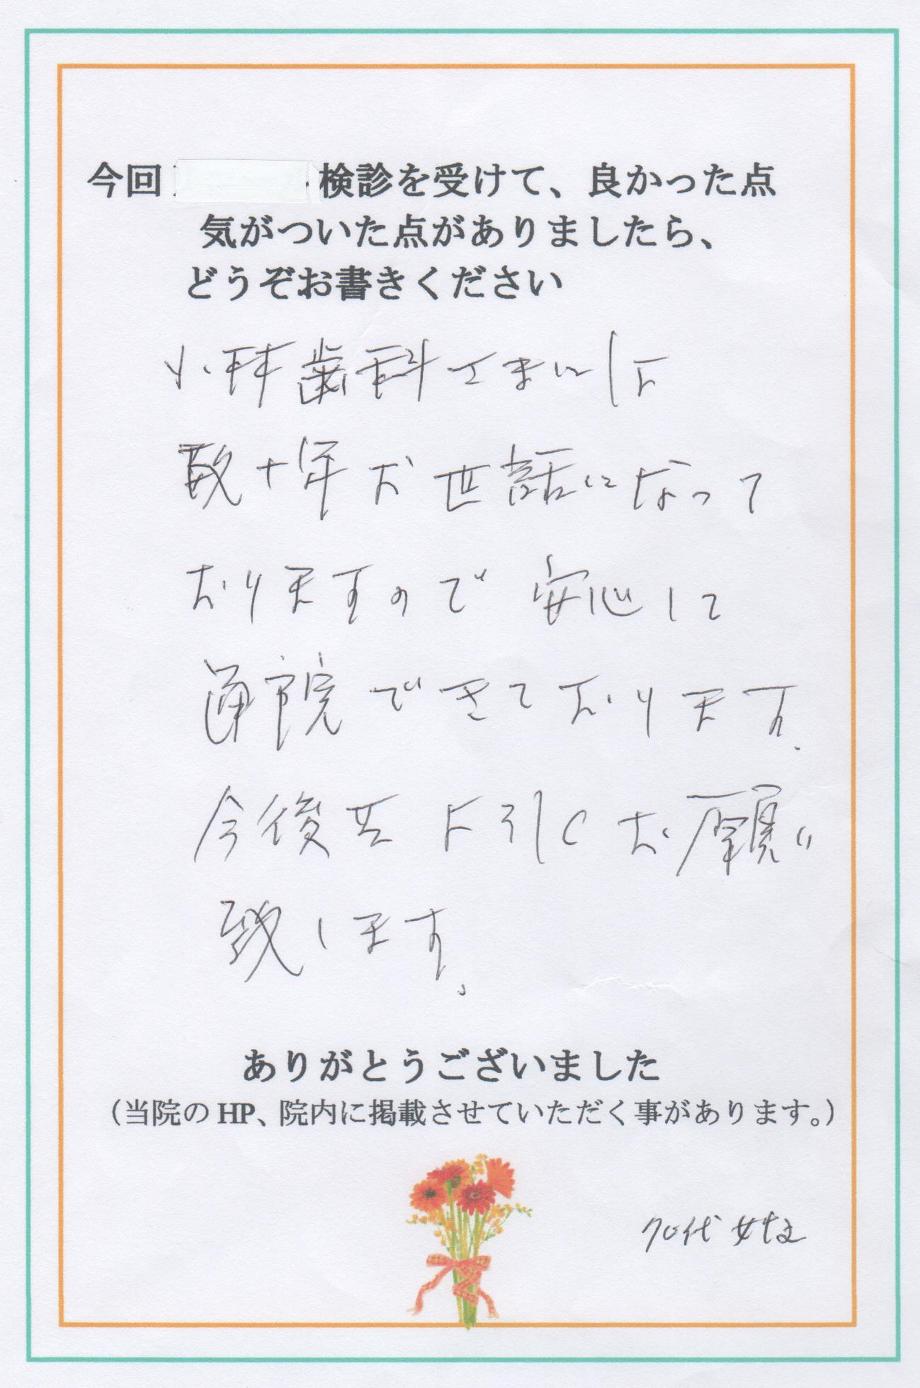 今回 検診を受けて、良かった点
気がついた点がありましたら、
どうぞお書きください
小林歯科さまには
数十年お世話になって
おりますので 安心して
通院できております.
今後共 よろしくお願い
致します。
ありがとうございました
（当院の HP、院内に掲載させていただく事があります。）
70代 女性